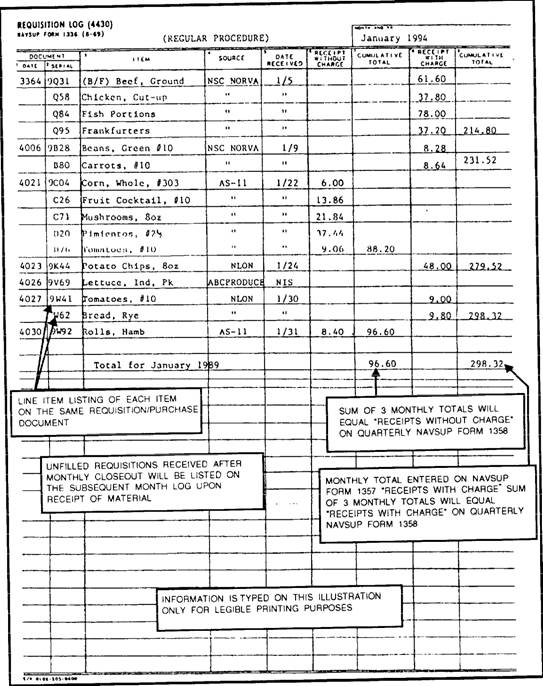 REQUISITION LOG (4430)
NAVSUP FORM 1336 (8-69)
(REGULAR PROCEDURE)
MONTH AND
January 1994
DOCUMENT
1 DATE 2 SERIAL 3 ITEM 4 SOURCE 5 DATE RECEIVED 6 RECEIPT WITHOUT CHARGE 7 CUMULATIVE TOTAL 8 RECEIPT WITH CHARGE 9 CUMULATIVE TOTAL
3364 9Q31 (B/F) Beef, Ground NSC NORVA 1/5 61.60
Q58 Chicken, Cut-up " " 37.80
Q84 Fish Portions " " 78.00
Q95 Frankfurters " " 37.20 214.80
4006 9B28 Beans, Green #10 NSC NORVA 1/9 8.28
B80 Carrots, #10 " " 8.64 231.52
4021 9C04 Corn, Whole, #303 AS-11 1/22 6.00
C26 Fruit Cocktail, #10 " " 13.86
C71 Mushrooms, 8oz " " 21.84
D20 Pimientos, #2½ " " 37.44
D76 Tomatoes, #10 " " 9.06 88.20
4023 9K44 Potato Chips, 8oz NLON 1/24 48.00 279.52
4026 9V69 Lettuce, Ind, Pk ABCPRODUCE NIS
4027 9W41 Tomatoes, #10 NLON 1/30 9.00
W62 Bread, Rye " " 9.80 298.32
4030 9W92 Rolls, Hamb AS-11 1/31 8.40 96.60
Total for January 1989 96.60 298.32
LINE ITEM LISTING OF EACH ITEM
ON THE SAME REQUISITION/PURCHASE
DOCUMENT
SUM OF 3 MONTHLY TOTALS WILL
EQUAL "RECEIPTS WITHOUT CHARGE"
ON QUARTERLY NAVSUP FORM 1358
UNFILLED REQUISITIONS RECEIVED AFTER
MONTHLY CLOSEOUT WILL BE LISTED ON
THE SUBSEQUENT MONTH LOG UPON
RECEIPT OF MATERIAL
MONTHLY TOTAL ENTERED ON NAVSUP
FORM 1357 "RECEIPTS WITH CHARGE" SUM
OF 3 MONTHLY TOTALS WILL EQUAL
"RECEIPTS WITH CHARGE" ON QUARTERLY
NAVSUP FORM 1358
INFORMATION IS TYPED ON THIS ILLUSTRATION
ONLY FOR LEGIBLE PRINTING PURPOSES